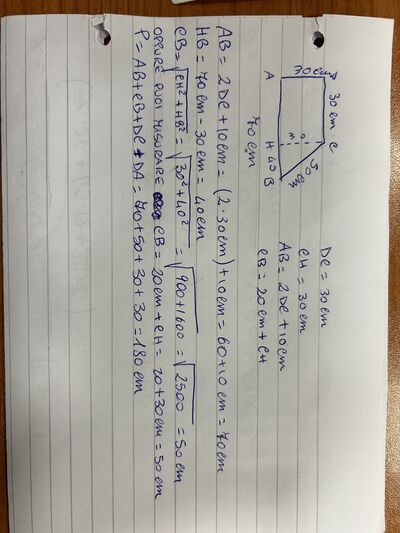 30 cm D
30 cm C
A
30 cm
H 40 B
50 cm
70 cm
DC = 30 cm
CH = 30 cm
AB = 2 DC + 10 cm
CB = 20 cm + CH
AB = 2DC + 10 cm = (2·30cm) + 10 cm = 60 + 10 cm = 70 cm
HB = 70 cm - 30 cm = 40 cm
CB = √CH² + HB² = √30² + 40² = √900 + 1600 = √2500 = 50 cm
OPPURE PUOI MISURARE CB = 20 cm + CH = 20 + 30 cm = 50 cm
P = AB + CB + DC + DA = 70 + 50 + 30 + 30 = 180 cm